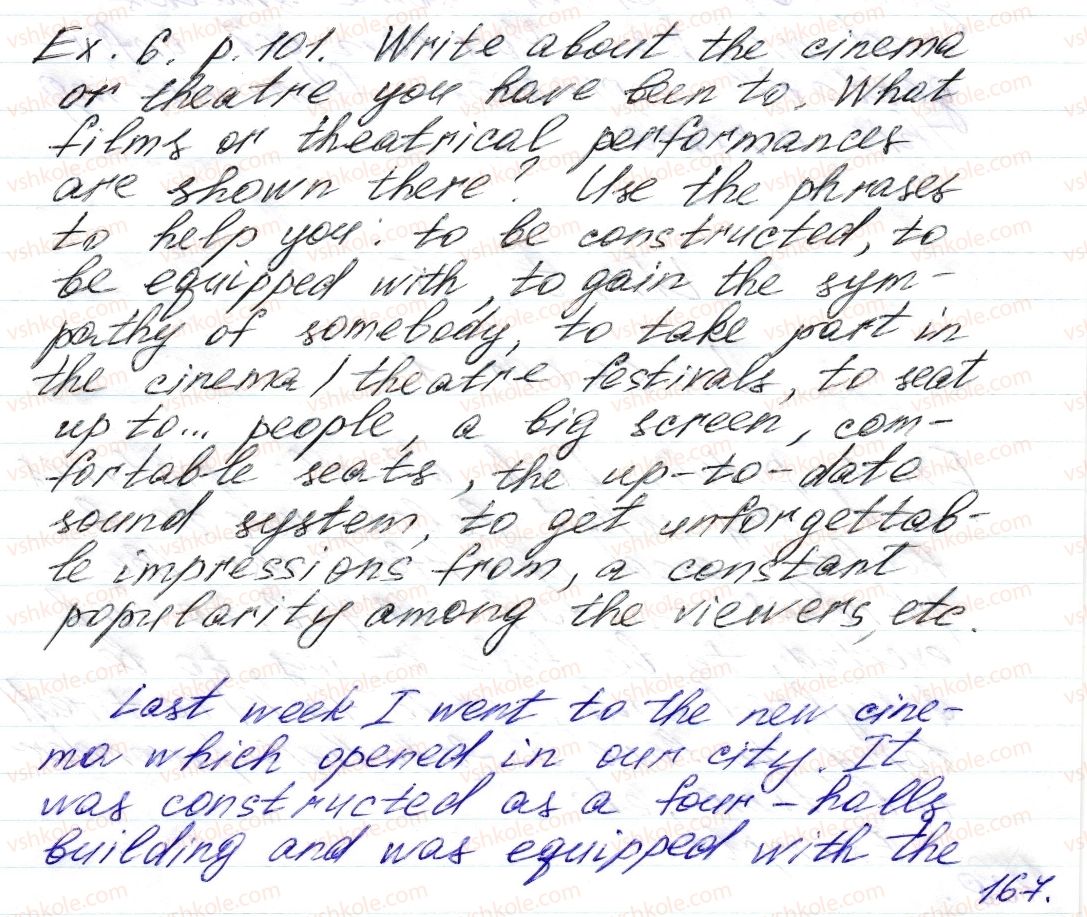 Ex. 6. p. 101. Write about the cinema
or theatre you have been to. What
films or theatrical performances
are shown there? Use the phrases
to help you: to be constructed, to
be equipped with, to gain the sym-
pathy of somebody, to take part in
the cinema / theatre festivals, to seat
up to... people, a big screen, com-
fortable seats, the up-to-date
sound system, to get unforgettab-
le impressions from, a constant
popularity among the viewers, etc.
Last week I went to the new cine-
ma which opened in our city. It
was constructed as a four-halls
building and was equipped with the
167.